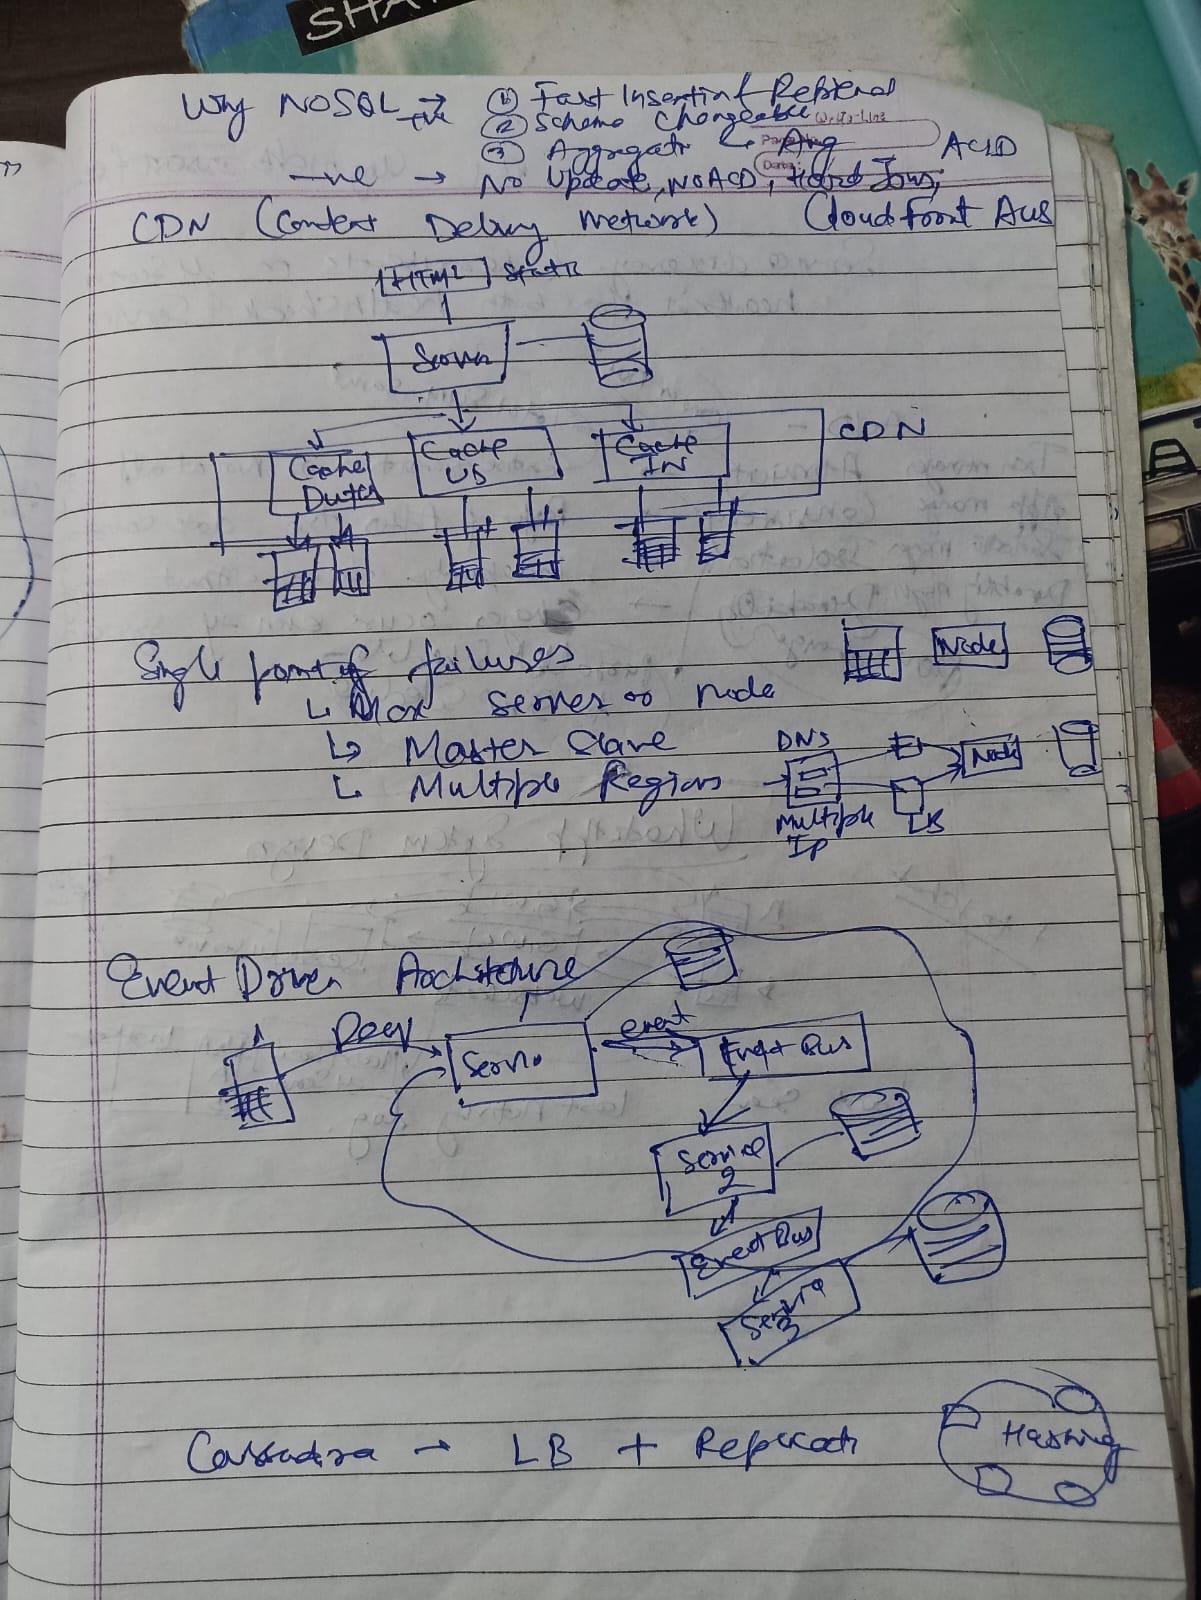 SHA
Why NOSQL +ve → ① Fast Insertion & Retrieval
② Schema Changeable
③ Aggregate → Avg
ACID
-ve → No Update, NO ACD, Hard Joins,
CDN (Content Delivery Network) Cloud Front Aws
HTML Static
Server
Cache
Dutch
Cache
US
Cache
IN
CDN
Single point of failures
Node
↳ Max server or node
↳ Master Slave
↳ Multiple Regions
DNS
Node
Multiple
Ip
LB
Event Driven Architecture
event
Event Bus
Service
2
Event Bus
Service
3
Cassadra → LB +
Hashing